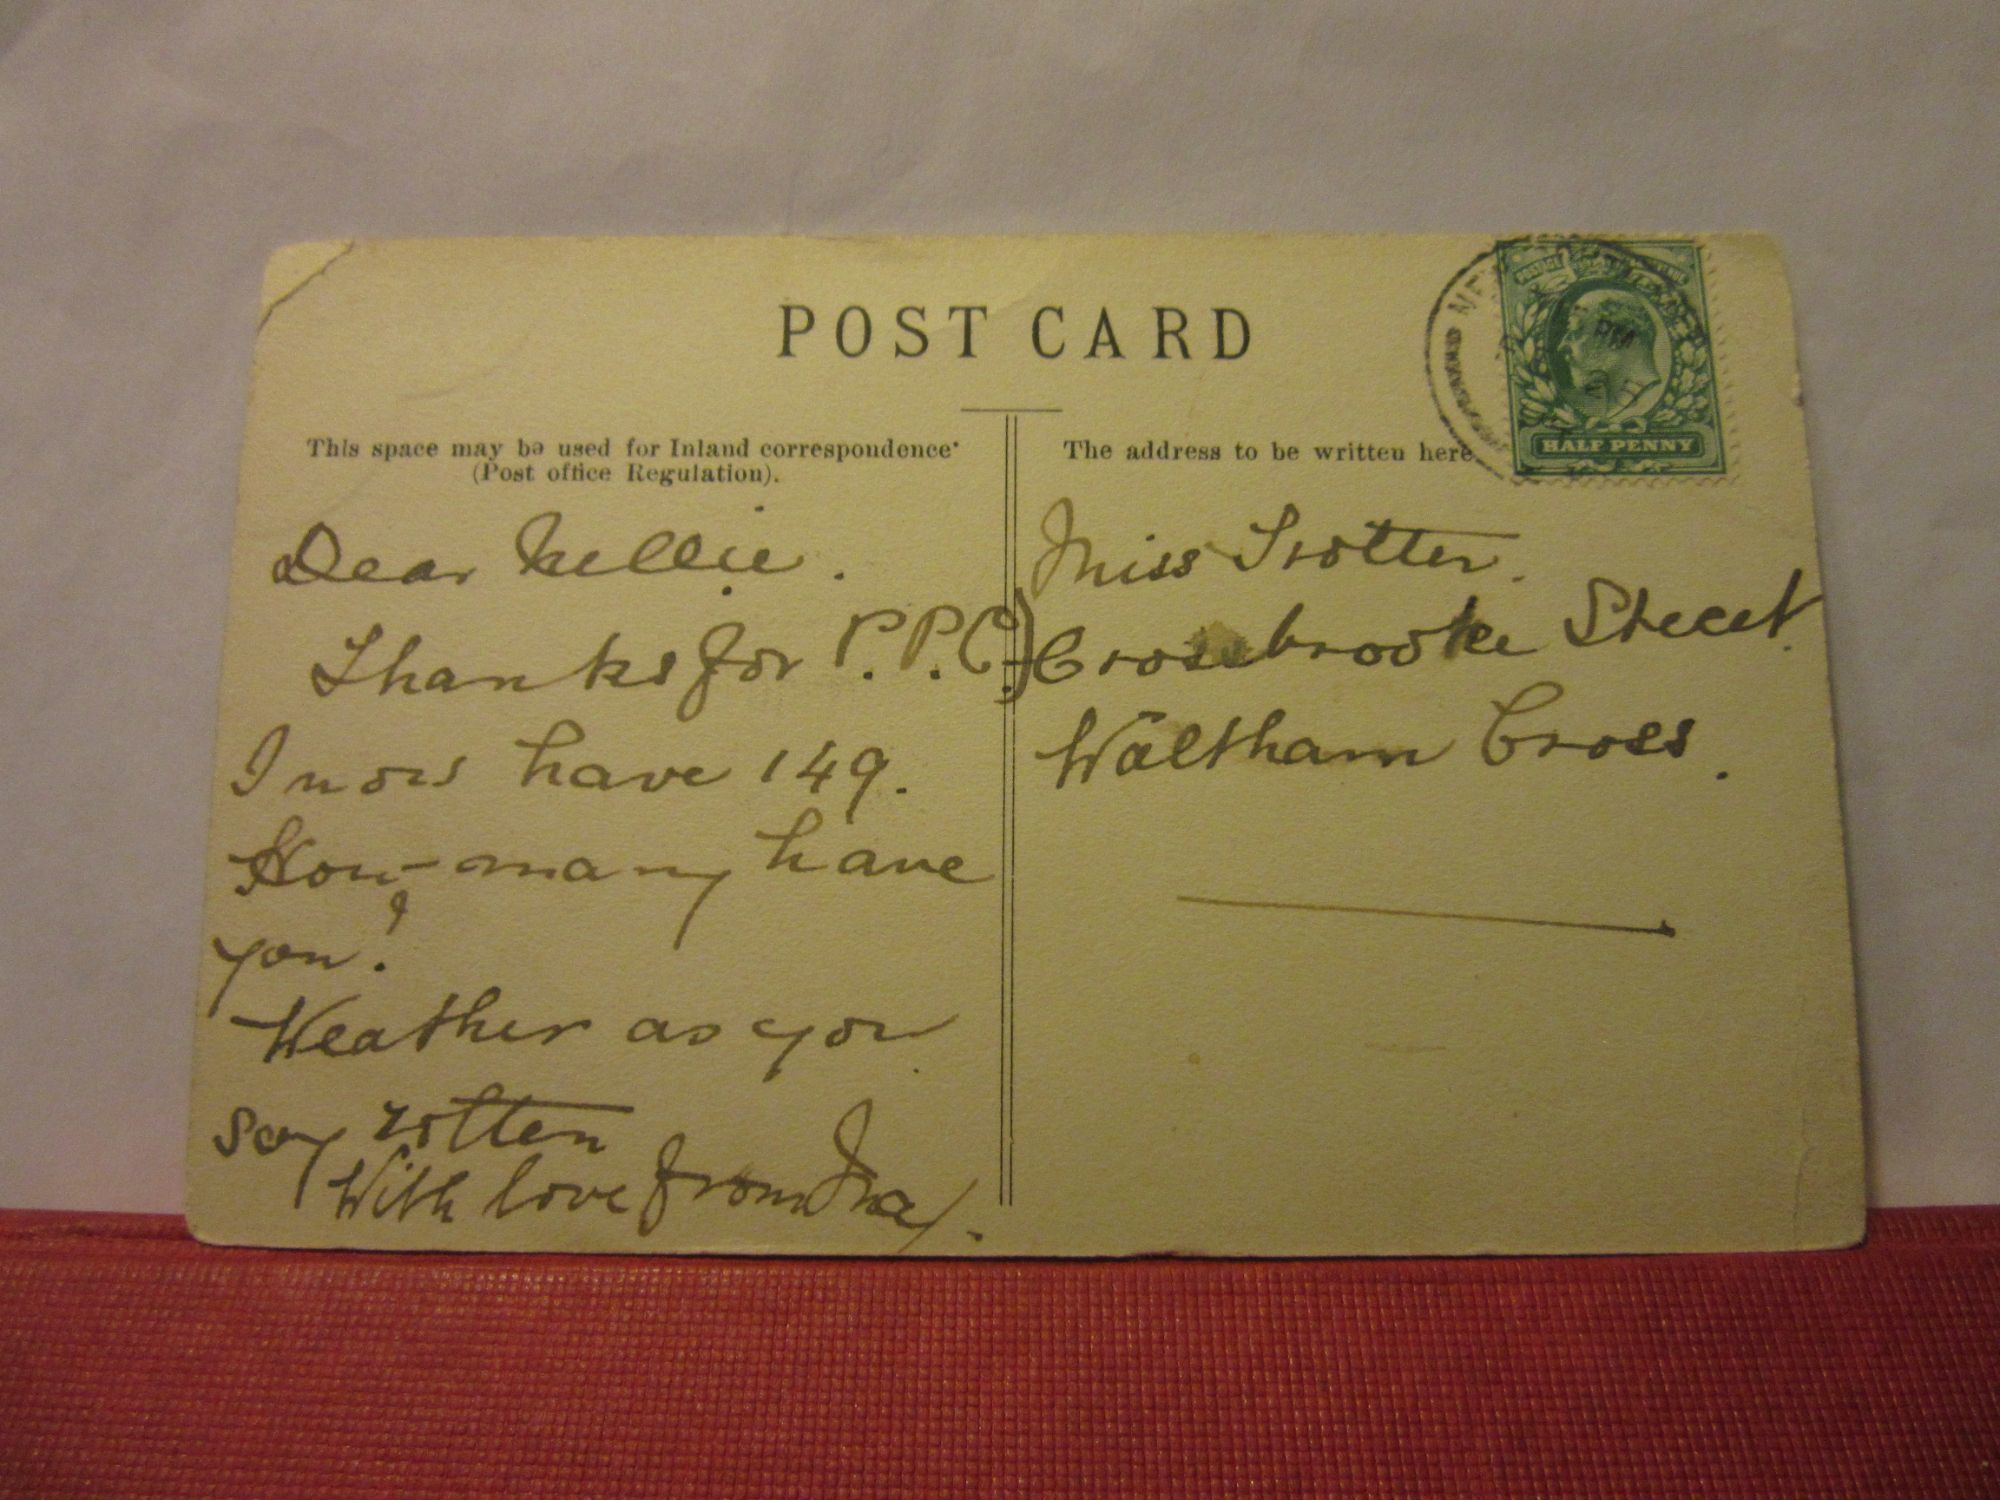 POST CARD
This space may be used for Inland correspondence
(Post office Regulation).
The address to be written here
POSTAGE REVENUE
PM
HALF PENNY
Dear Nellie.
Thanks for P.P.C.
I now have 149.
How many have
you?
Weather as you
say rotten
With love from Ina.
Miss Trotter.
Crossbrooke Street.
Waltham Cross.